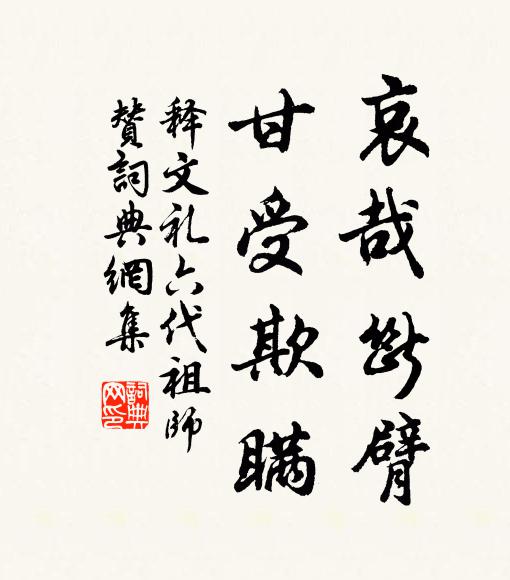 哀哉断臂
甘受欺瞞
释文礼六代祖師
賛詞典網集
詞典
网印